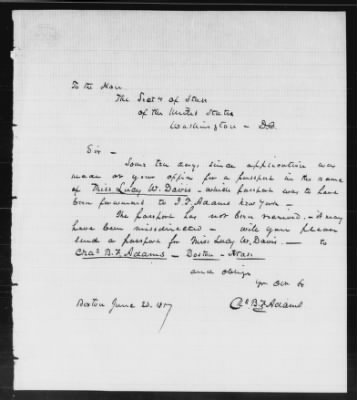 To the Hon.
The Sect'y of State
of the United States
Washington - D.C.
Sir -
Some ten days since application was
made at your office for a passport in the name
of Miss Lucy W. Davis - which passport was to have
been forwarded to J. F. Adams New York -
The passport has not been received. - it may
have been misdirected - will you please
send a passport for Miss Lucy W. Davis. - to
Chas B. F. Adams - Boston - Mass
and oblige
Yr Obt
Boston June 23. 18
Chs B. F. Adams